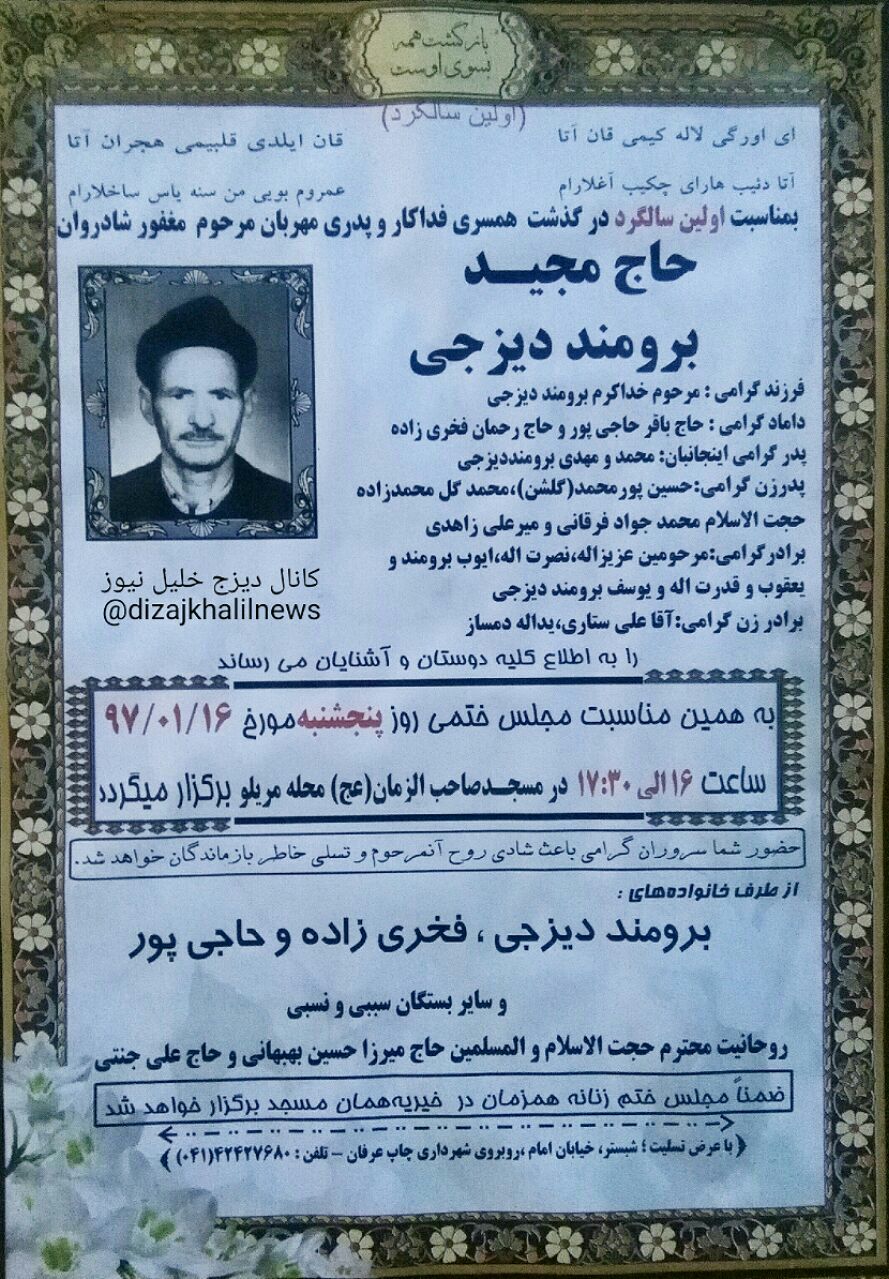 بازگشت همه
بسوی اوست
(اولین سالگرد)
ای اورگی لاله کیمی قان آتا
قان ایلدی قلبیمی هجران آتا
آتا دئیب هارای چکیب آغلارام
عمروم بویی من سنه یاس ساخلارام
بمناسبت اولین سالگرد در گذشت همسری فداکار و پدری مهربان مرحوم مغفور شادروان
حاج مجید
برومند دیزجی
فرزند گرامی : مرحوم خداکرم برومند دیزجی
داماد گرامی : حاج باقر حاجی پور و حاج رحمان فخری زاده
پدر گرامی اینجانبان: محمد و مهدی برومنددیزجی
پدرزن گرامی:حسین پورمحمد(گلشن)،محمد گل محمدزاده
حجت الاسلام محمد جواد فرقانی و میرعلی زاهدی
برادرگرامی:مرحومین عزیزاله،نصرت اله،ایوب برومند و
یعقوب و قدرت اله و یوسف برومند دیزجی
برادر زن گرامی:آقا علی ستاری،یداله دمساز
کانال دیزج خلیل نیوز
@dizajkhalilnews
را به اطلاع کلیه دوستان و آشنایان می رساند
به همین مناسبت مجلس ختمی روز پنجشنبه مورخ ۹۷/۰۱/۱۶
ساعت ۱۶ الی ۱۷:۳۰ در مسجدصاحب الزمان(عج) محله مریلو برگزار میگردد
حضور شما سروران گرامی باعث شادی روح آنمرحوم و تسلی خاطر بازماندگان خواهد شد.
از طرف خانواده‌های :
برومند دیزجی ، فخری زاده و حاجی پور
و سایر بستگان سببی و نسبی
روحانیت محترم حجت الاسلام و المسلمین حاج میرزا حسین بهبهانی و حاج علی جنتی
ضمناً مجلس ختم زنانه همزمان در خیریه‌همان مسجد برگزار خواهد شد
(با عرض تسلیت ؛ شبستر، خیابان امام ،روبروی شهرداری چاپ عرفان – تلفن : ۴۲۴۲۷۶۸۰(۰۴۱))